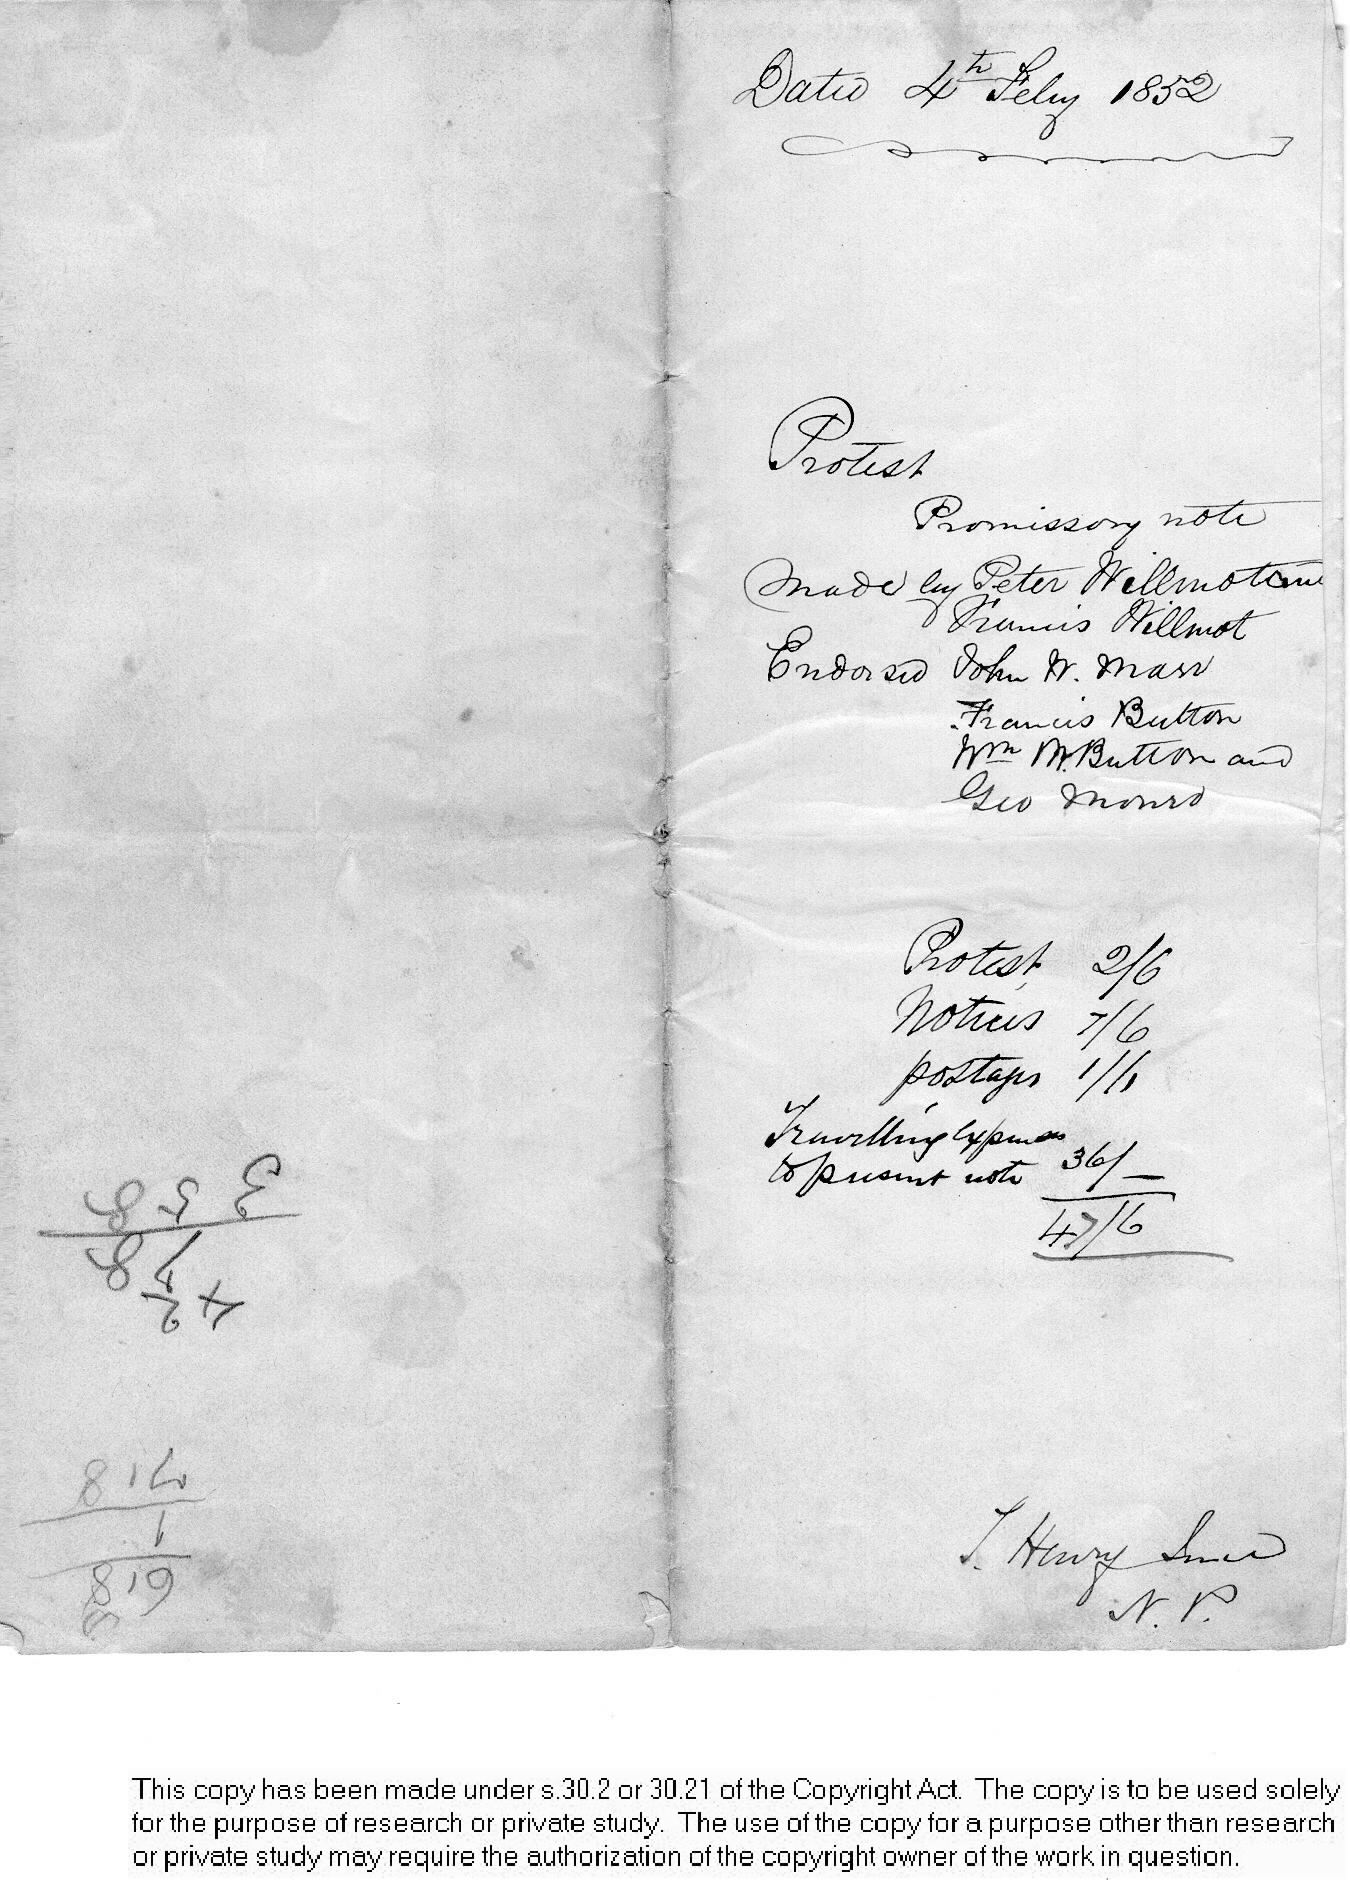 Dated 4th Feby 1852
Protest
Promissory note
Made by Peter Willmot and
Francis Willmot
Endorsed John W. Marr
Francis Button
Wm M. Button and
Geo Monro
Protest 2/6
Notices 7/6
postages 1/
Travelling Expenses
to present note 36/_
47/6
T. Henry
N. P.
3 5 8
8
718
1
819
This copy has been made under s.30.2 or 30.21 of the Copyright Act. The copy is to be used solely
for the purpose of research or private study. The use of the copy for a purpose other than research
or private study may require the authorization of the copyright owner of the work in question.